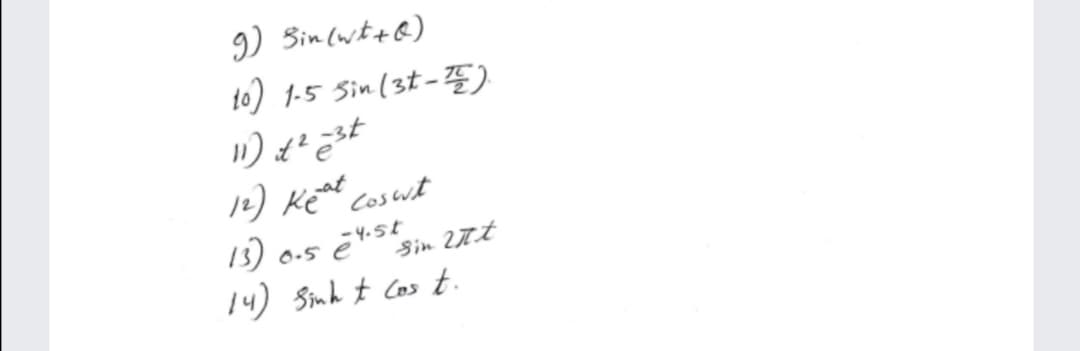 9) Sin(wt+Q)
10) 1.5 Sin(3t-π/2)
11) t² e^-3t
12) Ke^-at Cos wt
13) 0.5 e^-4.5t Sin 2πt
14) Sinh t Cos t.